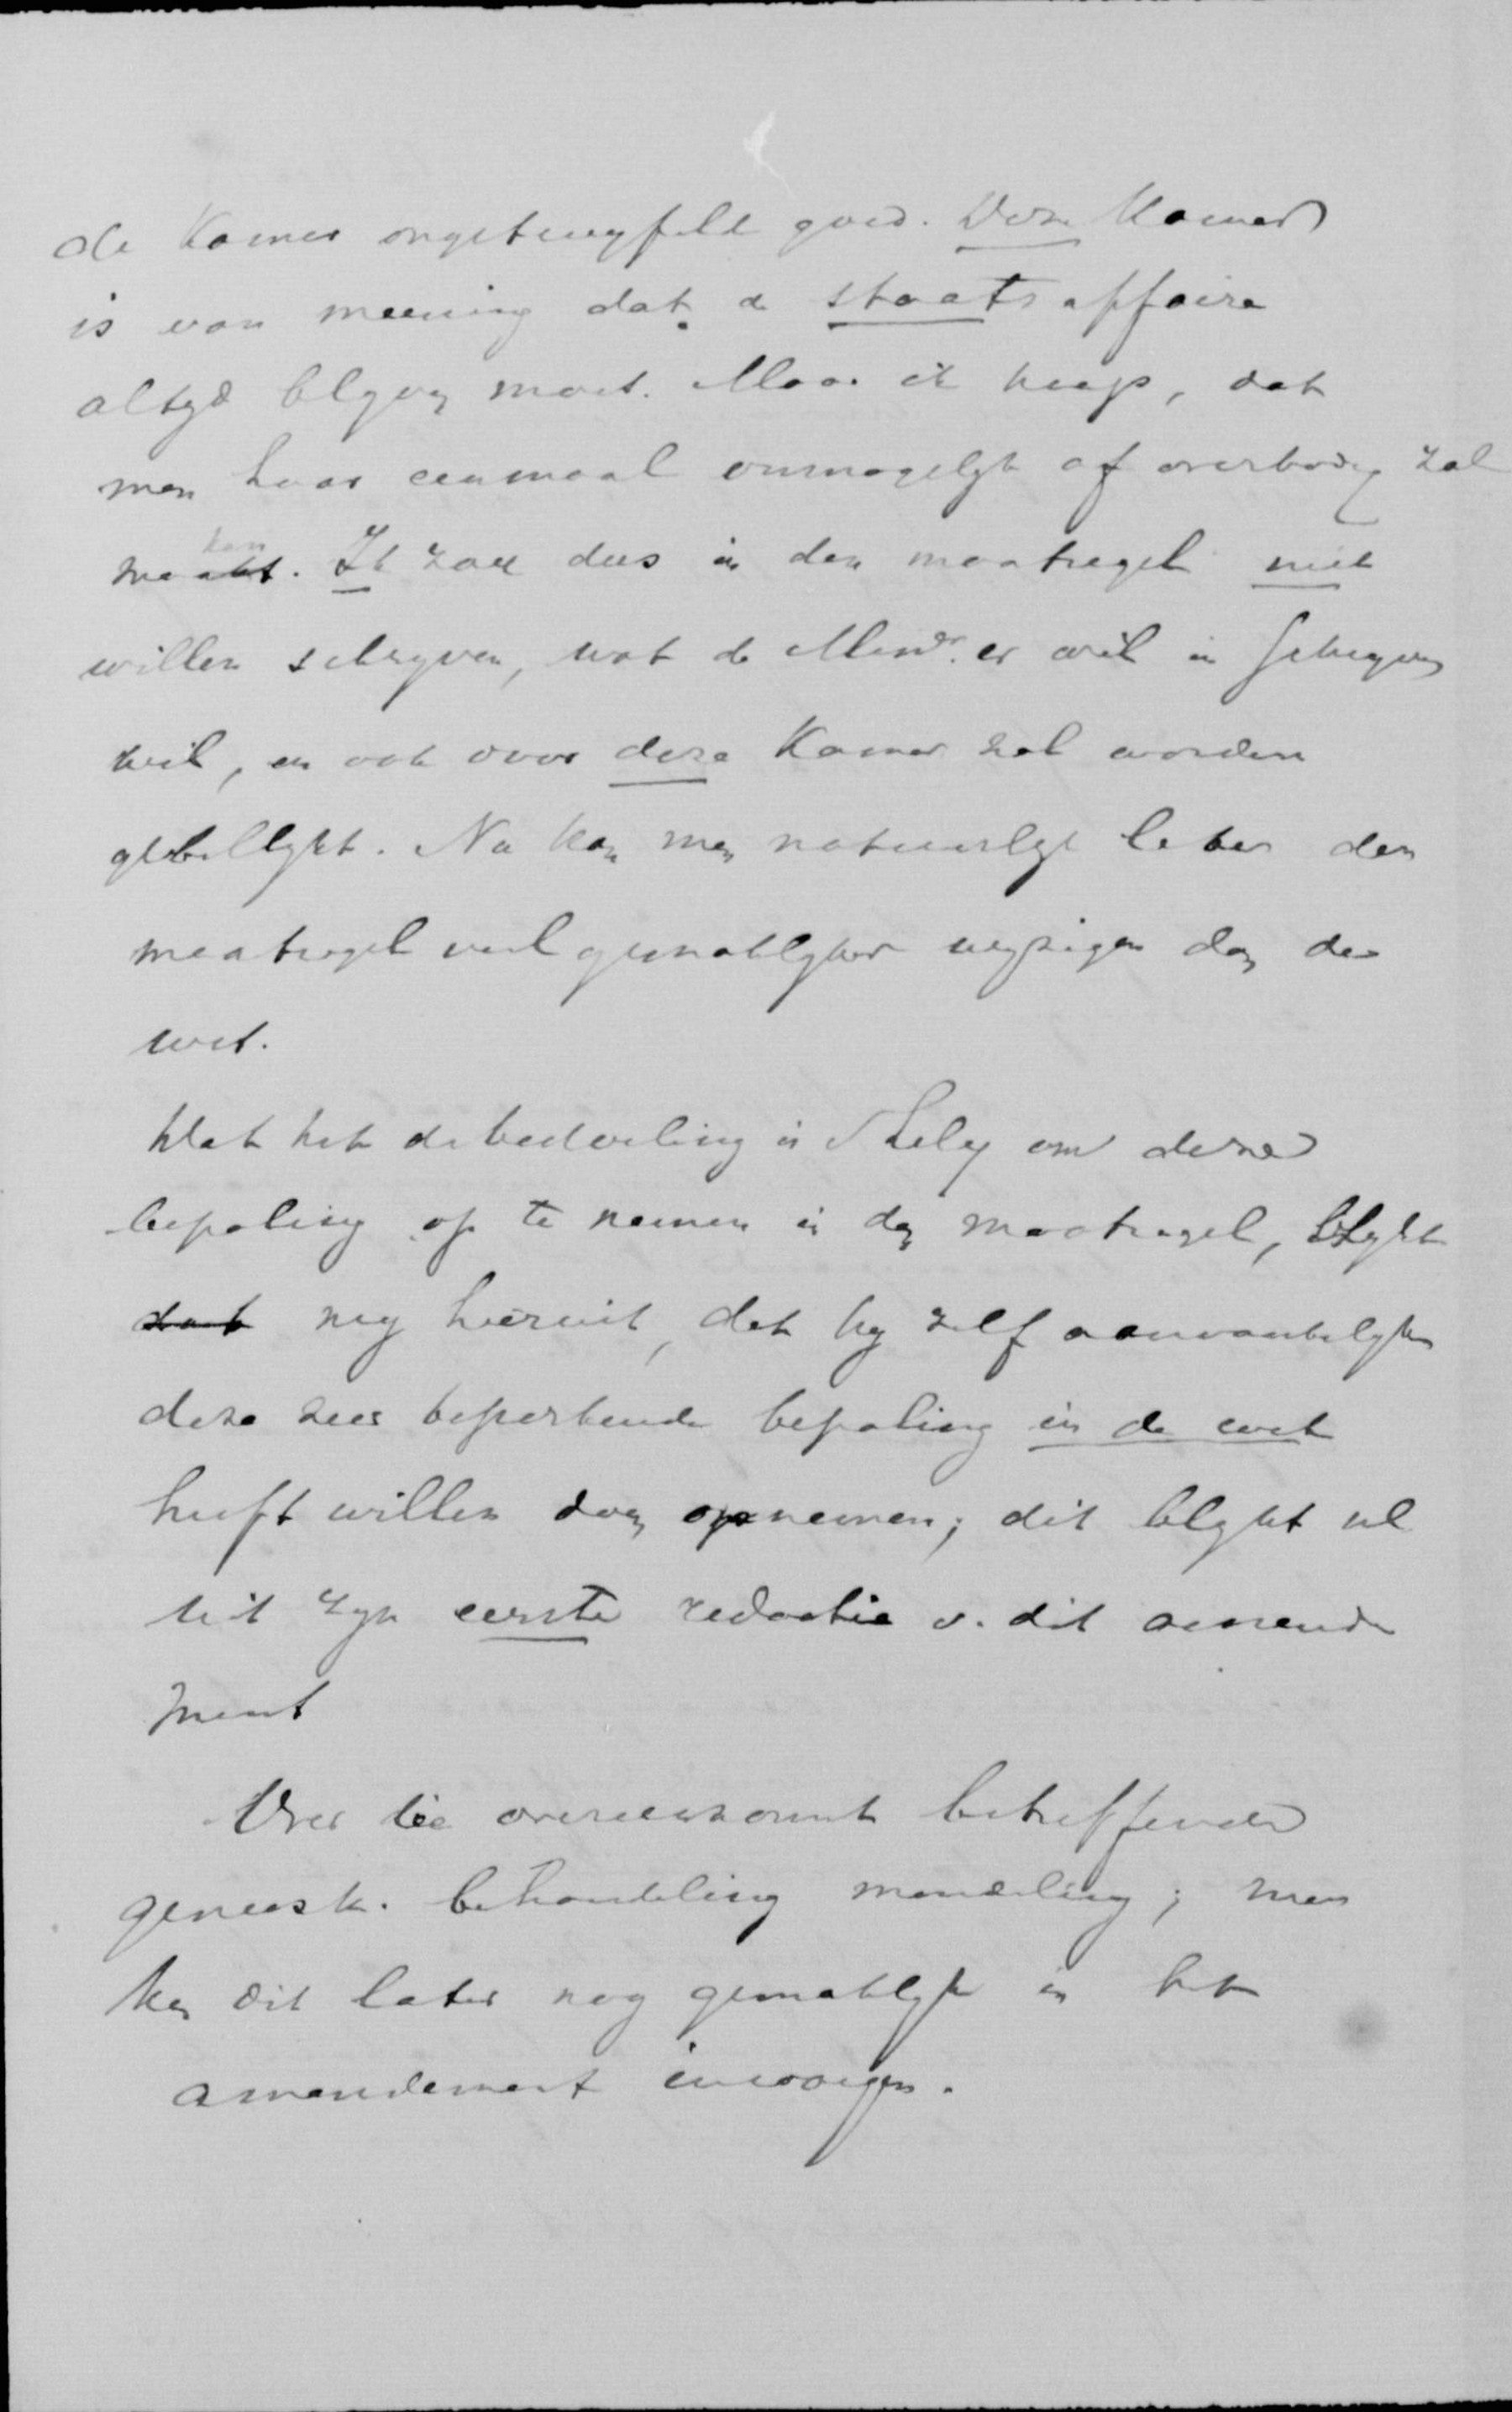 de Kamer ongetwyfeld goed. Deze Kamer
is van meening dat de staatsaffaire
altyd blyven moet. Maar ik hoop, dat
men haar eenmaal onmogelyk of overbodig zal
kan. Ik zou dus in den maatregel niet
willen schryven, wat de Minr. er wel in schryven
wil, en ook door deze Kamer zal worden
gebillykt. Nu kan men natuurlyk later den
maatregel veel gemakkelyker wyzigen dan de
wet.
Dat het de bedoeling is v Lely om deze
bepaling op te nemen in den maatregel, blykt
dat nog hieruit, dat hy zelf aanvankelyk
deze zeer beperkende bepaling in de wet
heeft willen doen opnemen; dit blykt nl
uit zyn eerste redactie v. dit amende
ment
Over die overeenkomst betreffende
geneesk. behandeling mondeling; men
kan dit later nog gemakkelyk in het
amendement invoegen.